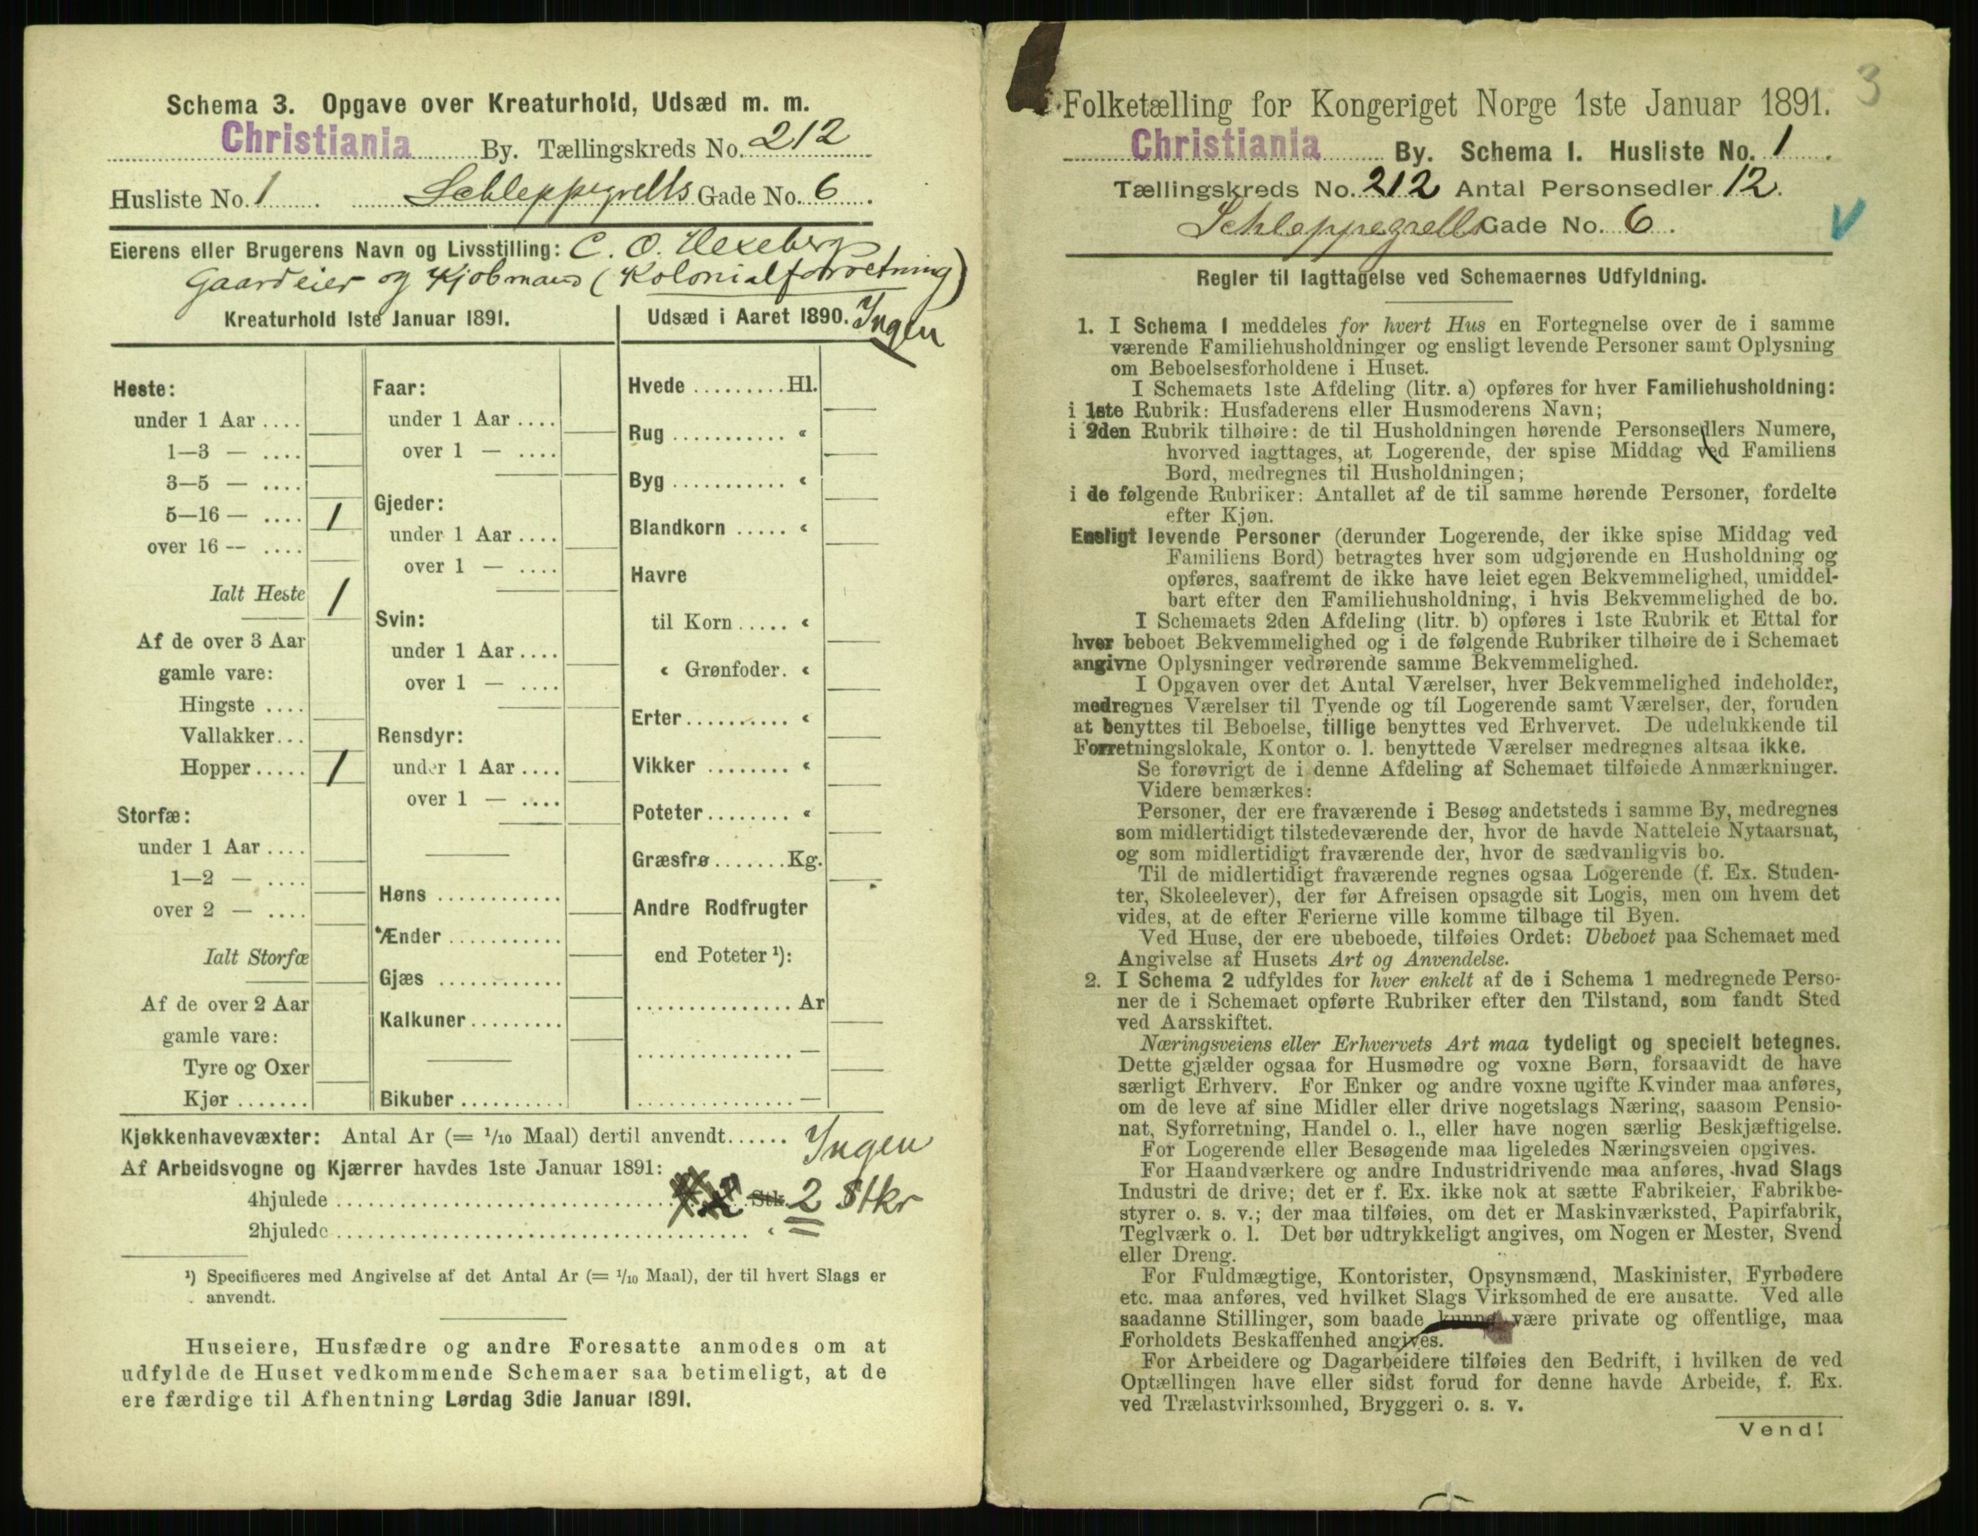 Schema 3. Opgave over Kreaturhold, Udsæd m. m.
Christiania By. Tællingskreds No. 212
Husliste No. 1 Schleppegrells Gade No. 6
Eierens eller Brugerens Navn og Livsstilling: C. O. Hexeberg
Gaardeier og Kjøbmand (Kolonialforretning)
Kreaturhold 1ste Januar 1891.
Heste:
under 1 Aar ....
1—3 — ....
3—5 — ....
5—16 — .... 1
over 16 — ....
Ialt Heste 1
Af de over 3 Aar
gamle vare:
Hingste ....
Vallakker...
Hopper..... 1
Storfæ:
under 1 Aar ....
1—2 — ....
over 2 — ....
Ialt Storfæ
Af de over 2 Aar
gamle vare:
Tyre og Oxer
Kjør .......
Faar:
under 1 Aar ....
over 1 — ....
Gjeder:
under 1 Aar ....
over 1 — ....
Svin:
under 1 Aar ....
over 1 — ....
Rensdyr:
under 1 Aar ....
over 1 — ....
Høns ............
Ænder ...........
Gjæs ............
Kalkuner.........
Bikuber ..........
Udsæd i Aaret 1890. Ingen
Hvede .........Hl.
Rug ........... «
Byg ........... «
Blandkorn ..... «
Havre
til Korn ..... «
« Grønfoder. «
Erter.......... «
Vikker ........ «
Poteter........ «
Græsfrø .......Kg.
Andre Rodfrugter
end Poteter ¹):
.............. Ar
.............. —
.............. —
Kjøkkenhavevæxter: Antal Ar (= 1/10 Maal) dertil anvendt...... Ingen
Af Arbeidsvogne og Kjærrer havdes 1ste Januar 1891:
4hjulede ........ 2 Stk. 2 Stkr
2hjulede ........ «
¹) Specificeres med Angivelse af det Antal Ar (= 1/10 Maal), der til hvert Slags er
anvendt.
Huseiere, Husfædre og andre Foresatte anmodes om at
udfylde de Huset vedkommende Schemaer saa betimeligt, at de
ere færdige til Afhentning Lørdag 3die Januar 1891.
3
Folketælling for Kongeriget Norge 1ste Januar 1891.
Christiania By. Schema I. Husliste No. 1.
Tællingskreds No. 212 Antal Personsedler 12.
Schleppegrells Gade No. 6.
Regler til Iagttagelse ved Schemaernes Udfyldning.
1. I Schema 1 meddeles for hvert Hus en Fortegnelse over de i samme
værende Familiehusholdninger og ensligt levende Personer samt Oplysning
om Beboelsesforholdene i Huset.
I Schemaets 1ste Afdeling (litr. a) opføres for hver Familiehusholdning:
i 1ste Rubrik: Husfaderens eller Husmoderens Navn;
i 2den Rubrik tilhøire: de til Husholdningen hørende Personsedlers Numere,
hvorved iagttages, at Logerende, der spise Middag ved Familiens
Bord, medregnes til Husholdningen;
i de følgende Rubriker: Antallet af de til samme hørende Personer, fordelte
efter Kjøn.
Ensligt levende Personer (derunder Logerende, der ikke spise Middag ved
Familiens Bord) betragtes hver som udgjørende en Husholdning og
opføres, saafremt de ikke have leiet egen Bekvemmelighed, umiddel-
bart efter den Familiehusholdning, i hvis Bekvemmelighed de bo.
I Schemaets 2den Afdeling (litr. b) opføres i 1ste Rubrik et Ettal for
hver beboet Bekvemmelighed og i de følgende Rubriker tilhøire de i Schemaet
angivne Oplysninger vedrørende samme Bekvemmelighed.
I Opgaven over det Antal Værelser, hver Bekvemmelighed indeholder,
medregnes Værelser til Tyende og til Logerende samt Værelser, der, foruden
at benyttes til Beboelse, tillige benyttes ved Erhvervet. De udelukkende til
Forretningslokale, Kontor o. l. benyttede Værelser medregnes altsaa ikke.
Se forøvrigt de i denne Afdeling af Schemaet tilføiede Anmærkninger.
Videre bemærkes:
Personer, der ere fraværende i Besøg andetsteds i samme By, medregnes
som midlertidigt tilstedeværende der, hvor de havde Natteleie Nytaarsnat,
og som midlertidigt fraværende der, hvor de sædvanligvis bo.
Til de midlertidigt fraværende regnes ogsaa Logerende (f. Ex. Studen-
ter, Skoleelever), der før Afreisen opsagde sit Logis, men om hvem det
vides, at de efter Ferierne ville komme tilbage til Byen.
Ved Huse, der ere ubeboede, tilføies Ordet: Ubeboet paa Schemaet med
Angivelse af Husets Art og Anvendelse.
2. I Schema 2 udfyldes for hver enkelt af de i Schema 1 medregnede Perso-
ner de i Schemaet opførte Rubriker efter den Tilstand, som fandt Sted
ved Aarsskiftet.
Næringsveiens eller Erhvervets Art maa tydeligt og specielt betegnes.
Dette gjælder ogsaa for Husmødre og voxne Børn, forsaavidt de have
særligt Erhverv. For Enker og andre voxne ugifte Kvinder maa anføres,
om de leve af sine Midler eller drive nogetslags Næring, saasom Pensio-
nat, Syforretning, Handel o. l., eller have nogen særlig Beskjæftigelse.
For Logerende eller Besøgende maa ligeledes Næringsveien opgives.
For Haandværkere og andre Industridrivende maa anføres, hvad Slags
Industri de drive; det er f. Ex. ikke nok at sætte Fabrikeier, Fabrikbe-
styrer o. s. v.; der maa tilføies, om det er Maskinværksted, Papirfabrik,
Teglværk o. l. Det bør udtrykkeligt angives, om Nogen er Mester, Svend
eller Dreng.
For Fuldmægtige, Kontorister, Opsynsmænd, Maskinister, Fyrbødere
etc. maa anføres, ved hvilket Slags Virksomhed de ere ansatte. Ved alle
saadanne Stillinger, som baade kunne være private og offentlige, maa
Forholdets Beskaffenhed angives.
For Arbeidere og Dagarbeidere tilføies den Bedrift, i hvilken de ved
Optællingen have eller sidst forud for denne havde Arbeide, f. Ex.
ved Trælastvirksomhed, Bryggeri o. s. v.
Vend!